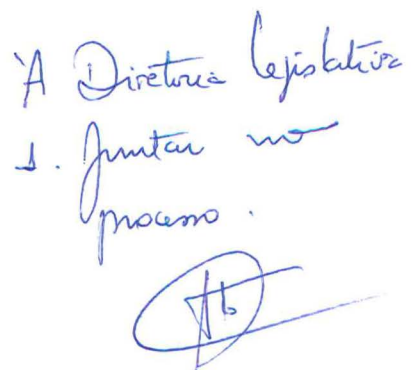 À Diretoria Legislativa
1. Juntar no
processo.